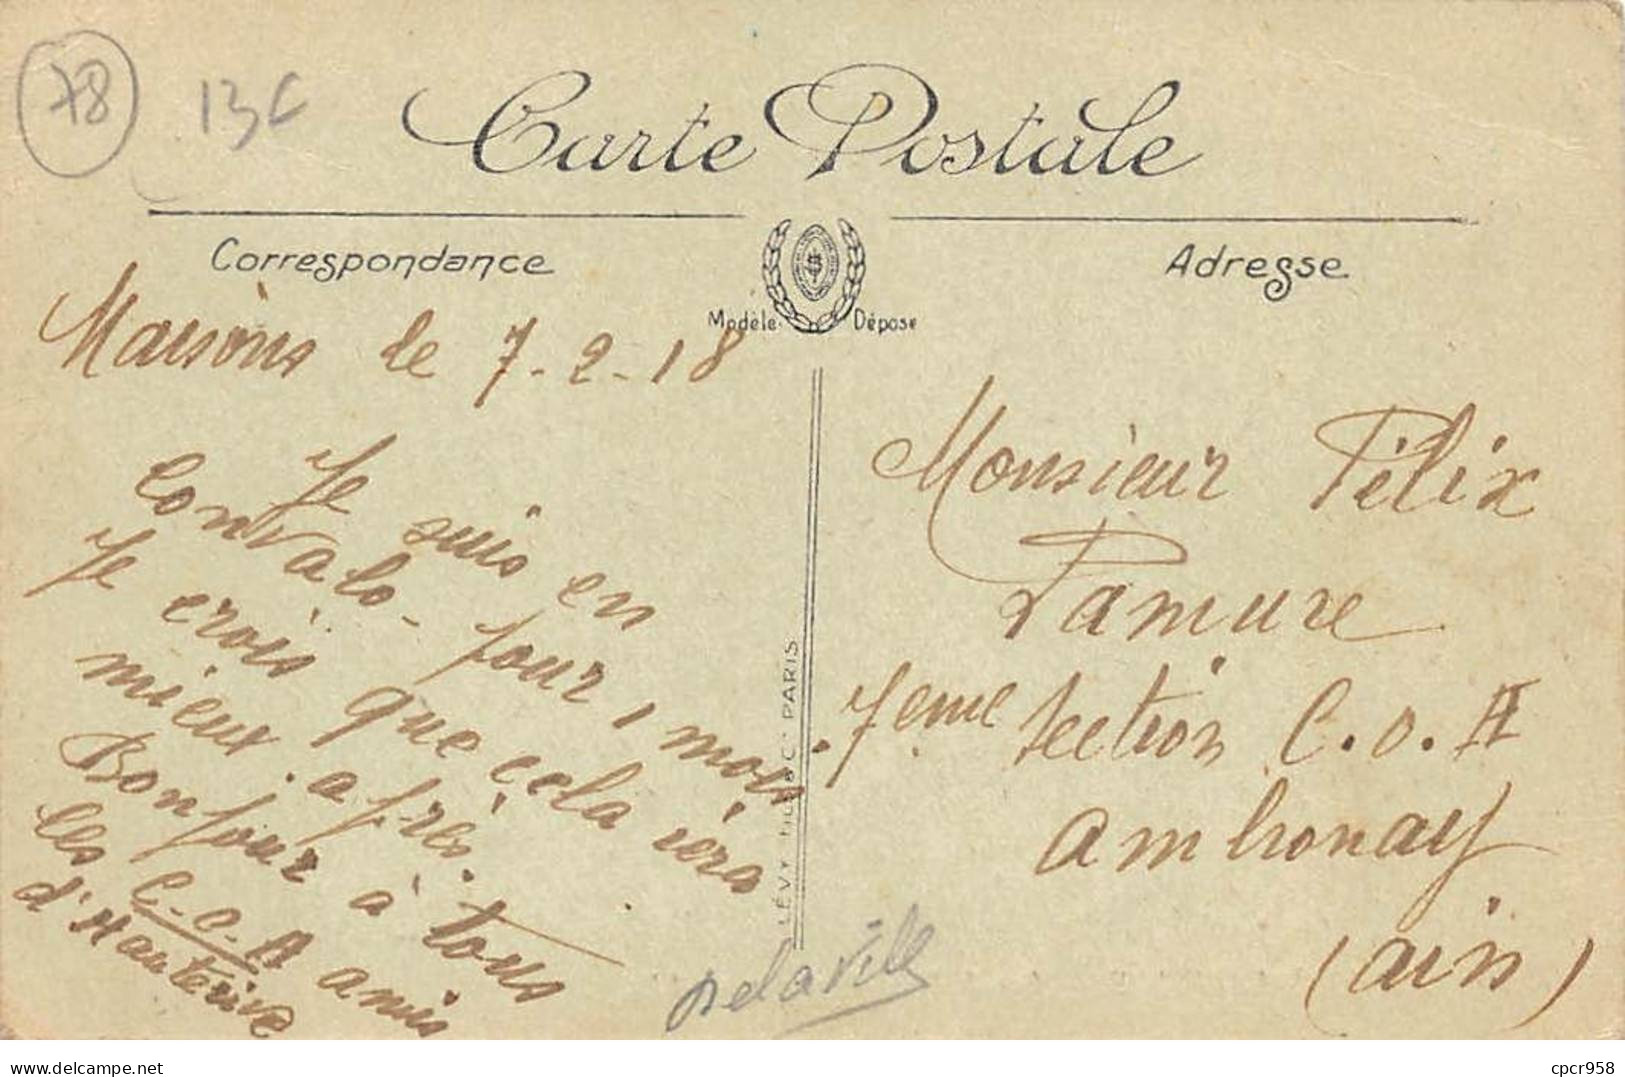 78
13C
Carte Postale
Correspondance
Adresse
Modèle Déposé
Maisons le 7-2-18
Je suis en
Convalo- pour 1 mois.
Je crois que cela ira
mieux. après.
Bonjour à tous
les C.O.A amis
d'Hauterive
LÉVY PARIS
Monsieur Félix
Lamure
7eme Section C.O.A
Ambronay
(Ain)
Delaville
delcampe.net
cpcr958